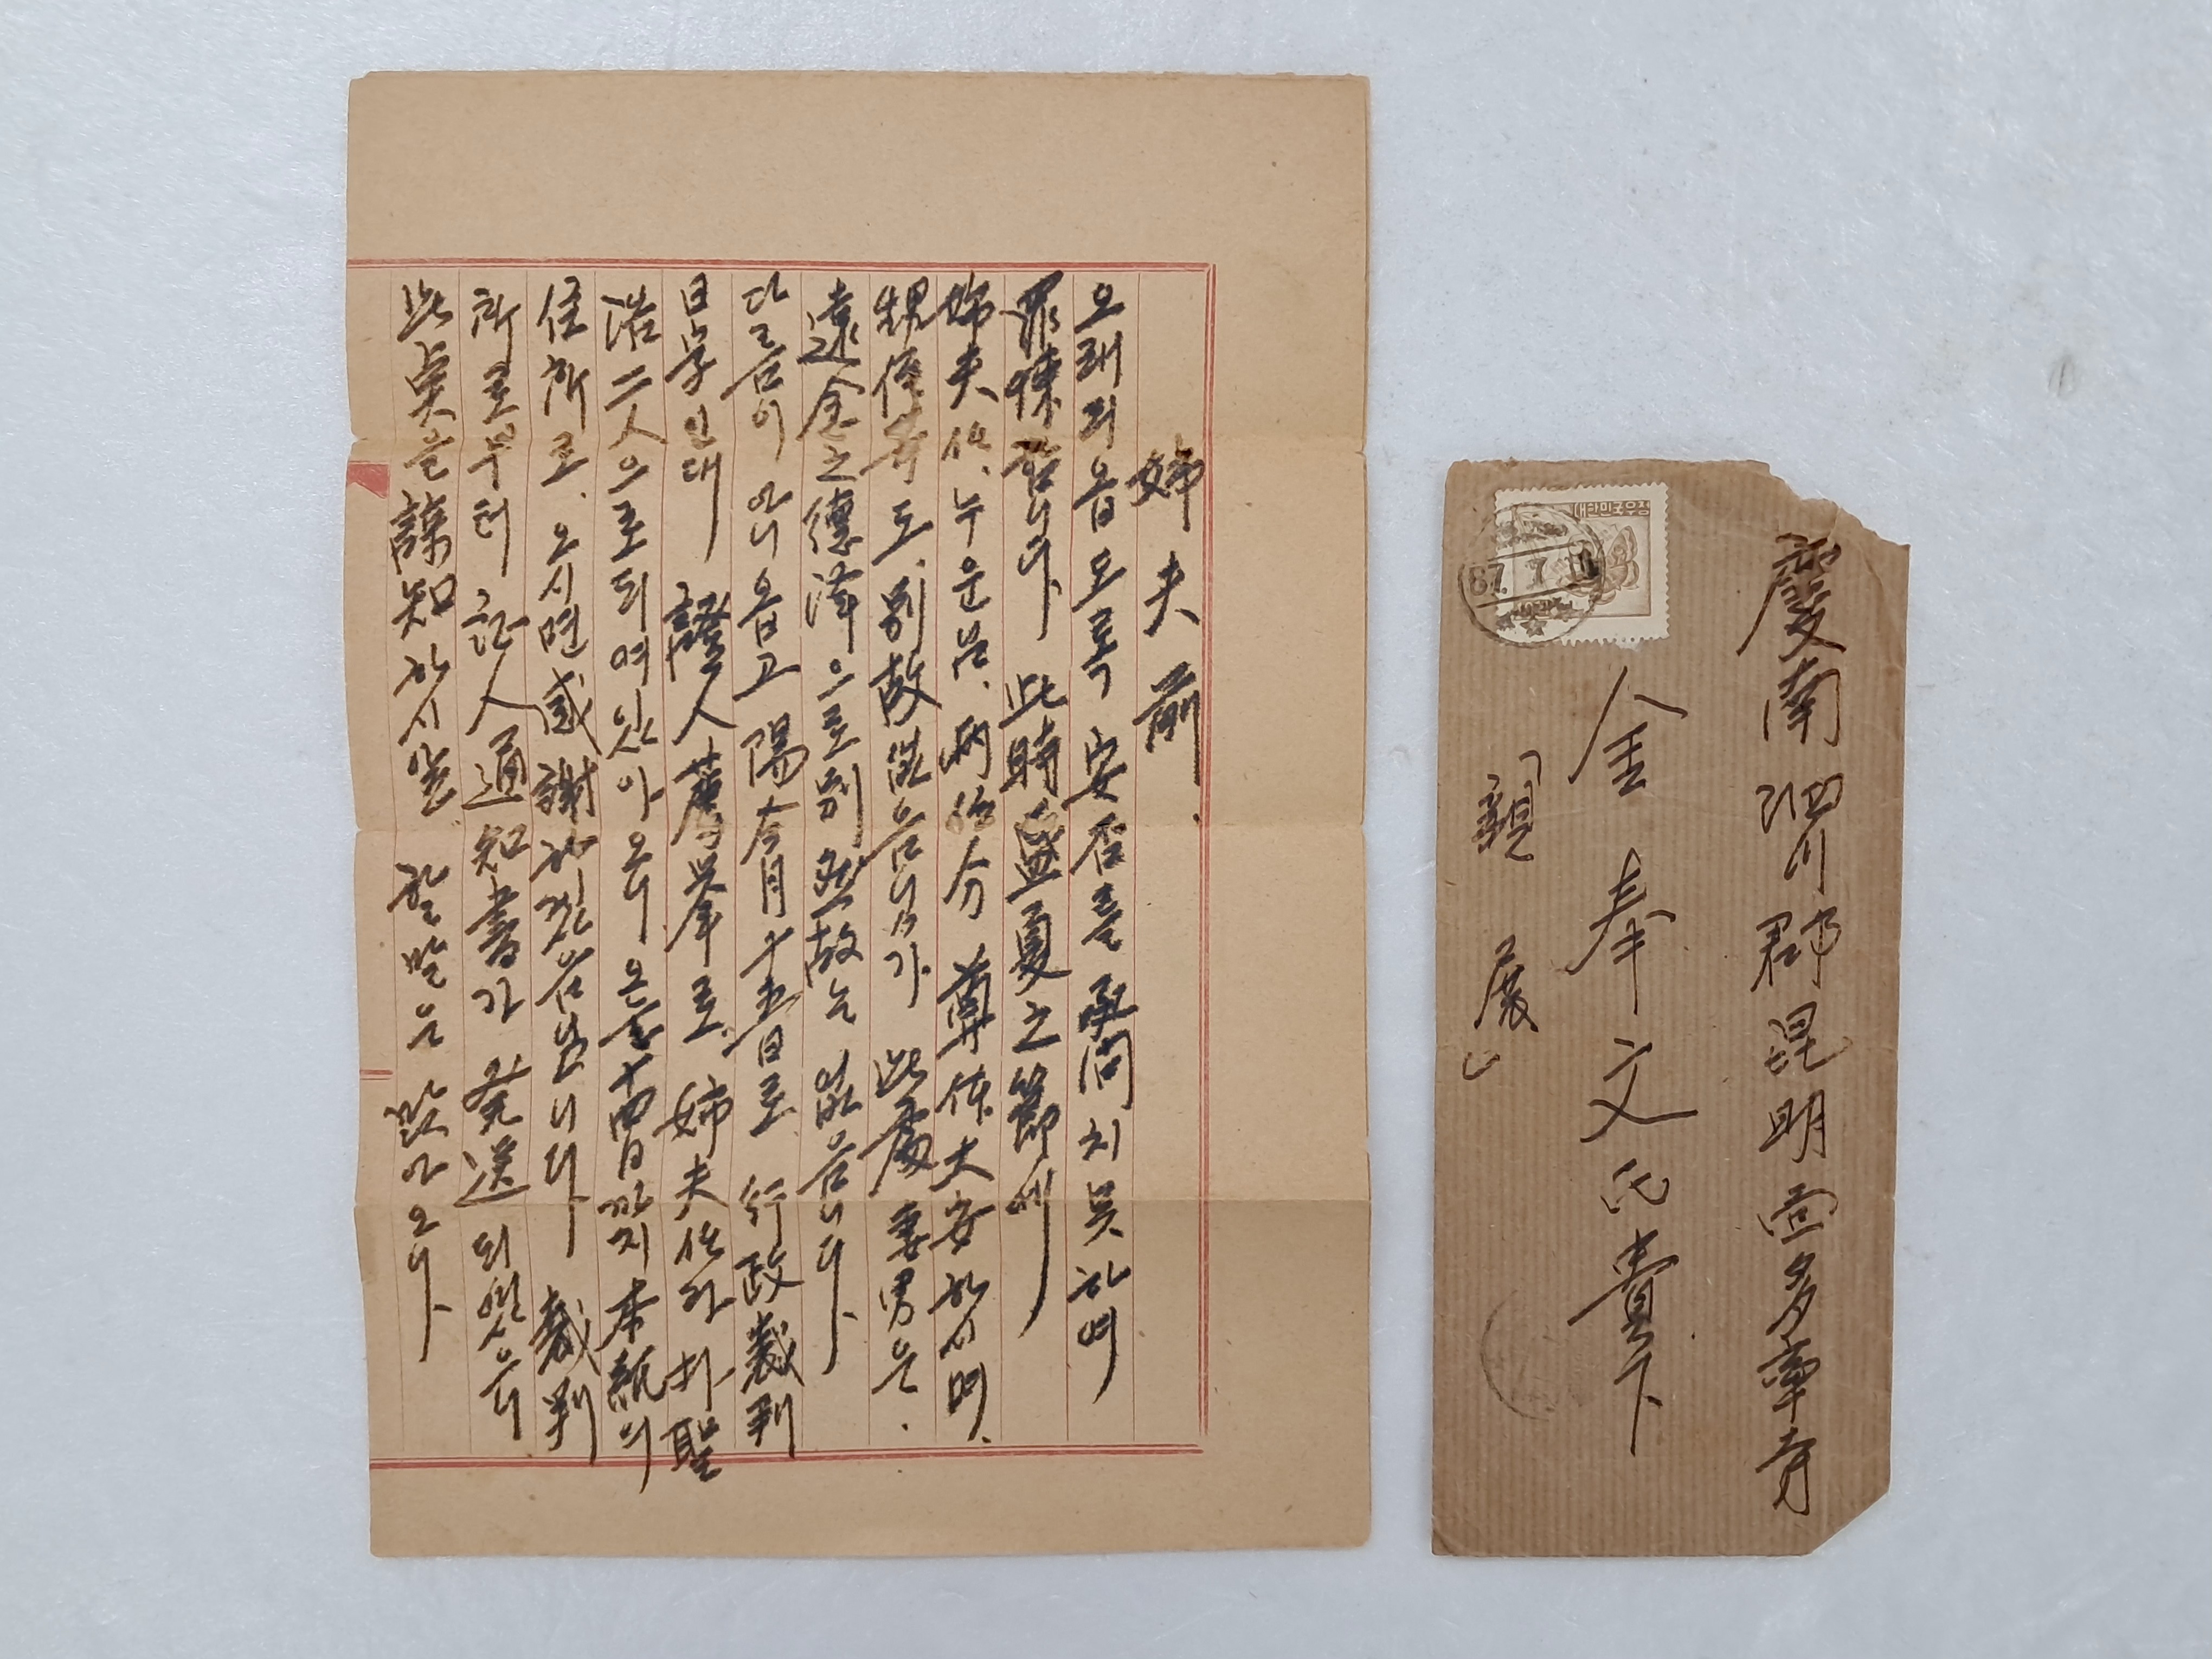 姉夫前.
오래되옵도록 安否를 承問치 못하여
罪悚합니다 此時盛夏之節에
姉夫任、누운님、両位分 尊体大安하시며、
甥侄等도、別故없읍니까 此處 妻男은.
遠念之德澤으로 別無故는 없읍니다.
다름이 아니옵고 陽本月十五日로 行政裁判
日字인대 證人舊擧로、姉夫任과 朴聖
浩 二人으로 되여 있아오니 오는十四日까지 本紙의
住所로、오시면 感謝하겠읍니다 裁判
所로부터 証人通知書가 発送되였으되
此貞을 諒知하시압 할말은 많아오나
대한민국우정
67.7.
慶南 泗川郡 昆明面 多率寺
金奉文氏 貴下
「親展」